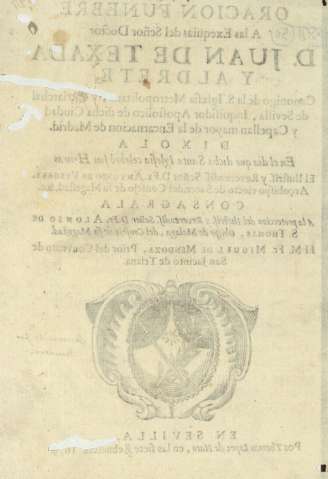 ORACION FUNEBRE
A las Exequias del Señor Doctor
D. JUAN DE TEXADA
Y ALDRETE,
Canonigo de la S. Iglesia Metropolitana, y Patriarchal
de Sevilla, Inquisidor Apostolico de dicha Ciudad
y Capellan mayor de la Encarnacion de Madrid.
DIXOLA
En el dia que dicha Santa Iglesia celebrò sus Honras
El Illustriss. y Reverendiss. Señor D. Fr.
Arçobispo electo de Consejo de su Magestad, &c.
CONSAGRALA
A la proteccion del Illustriss. y Reverendiss. Señor D. Fr. ALONSO DE
S. THOMAS, Obispo de Malaga, del Consejo de su Magestad
El M. Fr. MIGUEL DE MENDOZA, Prior del Convento de
San Jacinto de Triana.
EN SEVILLA,
Por Thomas Lopez de Haro, en las siete Rebueltas